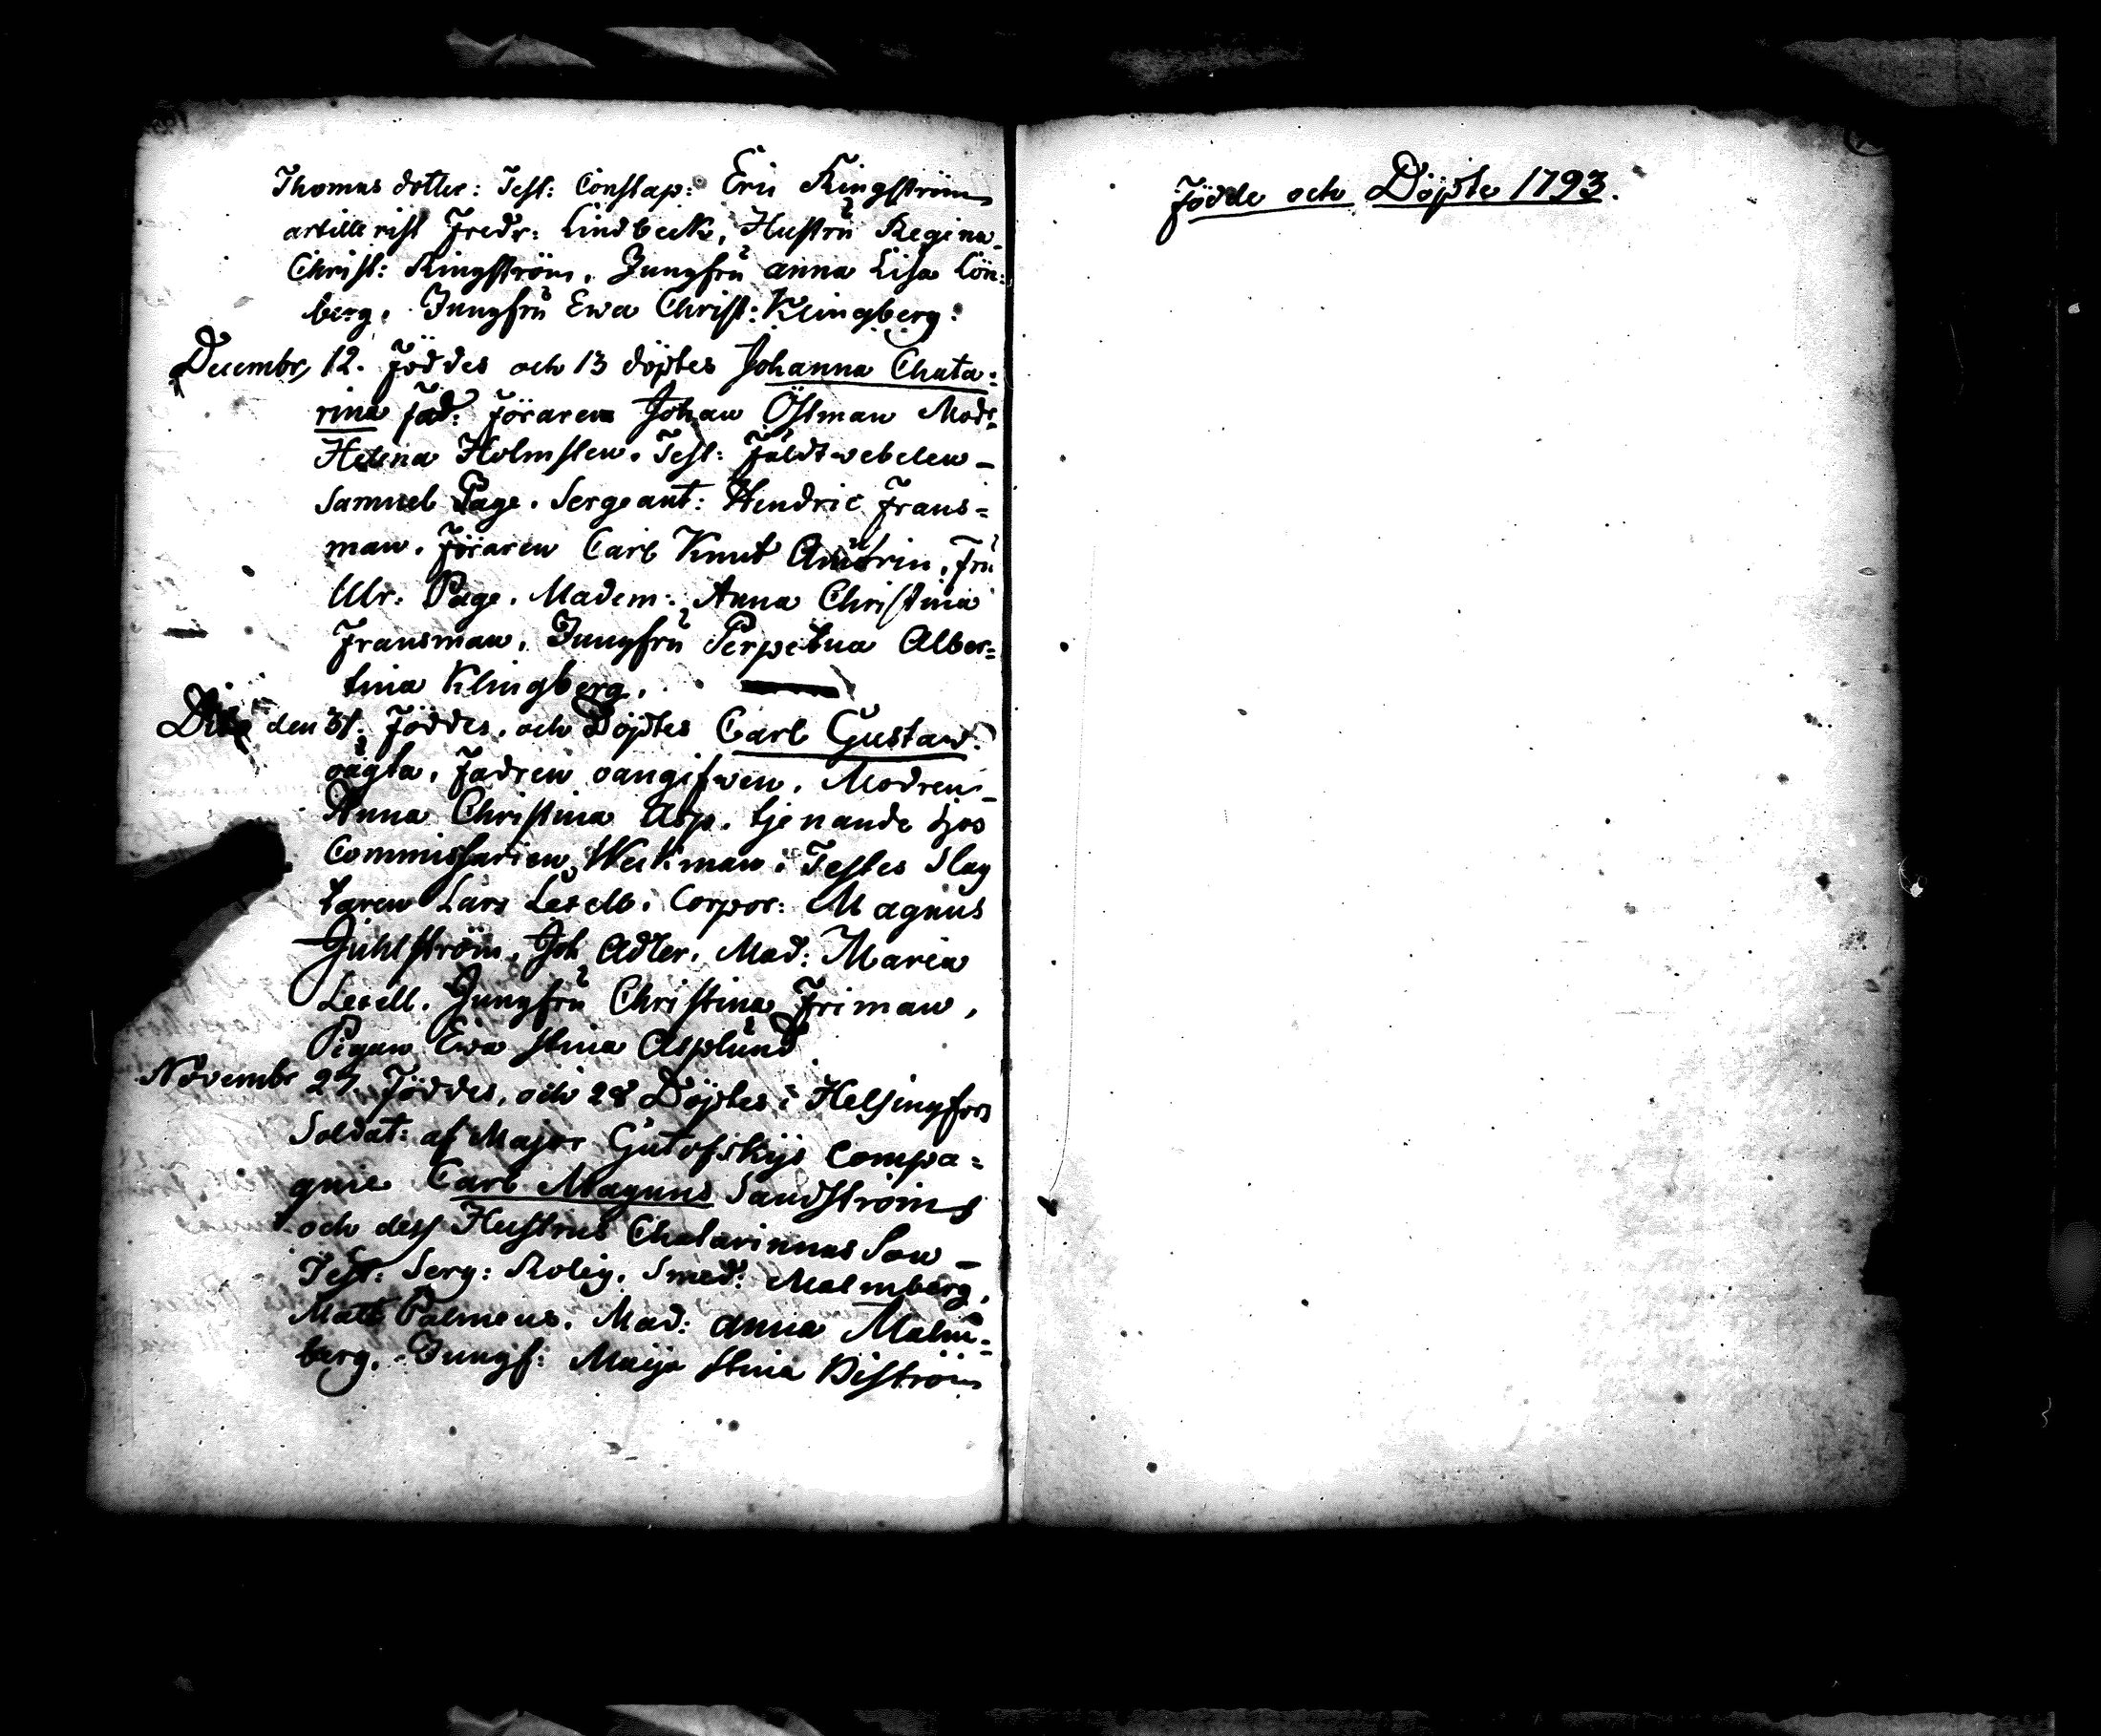 Thomas dotter: Test: Constap: Eric Ringström
artillerist Fredr: Lindbeck, Hustru Regina
Christ: Ringström, Jungfru anna Lisa Lön:
berg, Jungfru Ewa Christ: Klingberg:
Decembr, 12. Föddes och 13 döptes Johanna Chata:
rina Fad: Föraren Johan Östman Modr
Helena Holmsten. Test: Fältwebelen
Samuel Page. Sergeant: Hendric Frans=
man. Föraren Carl Knut Autrin, Fru
Ulr: Page. Madem: Anna Christina
Fransman, Jungfru Perpetua Alber=
tina Klingberg.
Dito den 31: Föddes, och Döptes Carl Gustaw:
oägta, Fadren oangifwen, Modren
Anna Christina Asp, tjenande hos
Commissarien Weckman. Testes Slag
taren Lars Lesell. Corpor: Magnus
Juhlström, Joh Adler, Mad: Maria
Lesell. Jungfru Christina Friman,
Pigan Ewa Stina Asplund
Novembr 27. Föddes, och 28 Döptes i Helsingfors
Soldat: af Major Gutofskijs Compa=
gnie Carl Magnus Sandströms
och dess Hustrus Chatarinnas Son
Test: Serg: Rolig, Smed: Malmberg,
Matts Palmeus. Mad: anna Malm=
berg, Jungf: Maija Stina Biström
Födde och Döpte 1793.